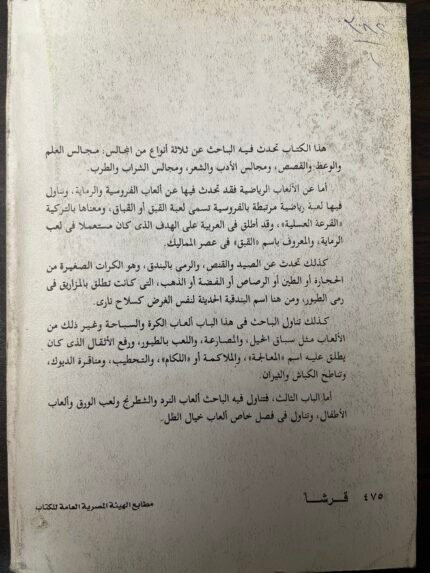 هذا الكتاب تحدث فيه الباحث عن ثلاثة أنواع من المجالس: مجالس العلم
والوعظ والقصص، ومجالس الأدب والشعر، ومجالس الشراب والطرب.
أما عن الألعاب الرياضية فقد تحدث فيها عن ألعاب الفروسية والرماية، وتناول
فيها لعبة رياضية مرتبطة بالفروسية تسمى لعبة القبق أو القباق، ومعناها بالتركية
«القرعة العسلية»، وقد أطلق في العربية على الهدف الذى كان مستعملا فى لعب
الرماية، والمعروف باسم «القبق» فى عصر المماليك.
كذلك تحدث عن الصيد والقنص، والرمى بالبندق، وهو الكرات الصغيرة من
الحجارة أو الطين أو الرصاص أو الفضة أو الذهب، التى كانت تطلق بالمزاريق فى
رمى الطيور، ومن هنا اسم البندقية الحديثة لنفس الغرض كسلاح نارى.
كذلك تناول الباحث فى هذا الباب ألعاب الكرة والسباحة وغير ذلك من
الألعاب مثل سباق الخيل، والمصارعة، واللعب بالطيور، ورفع الأثقال الذى كان
يطلق عليه اسم «المعالجة»، والملاكمة أو «اللكام»، والتحطيب، ومناقرة الديوك،
وتناطح الكباش والثيران.
أما الباب الثالث، فتناول فيه الباحث ألعاب النرد والشطرنج ولعب الورق وألعاب
الأطفال، وتناول فى فصل خاص ألعاب خيال الظل.
٤٧٥ قرشا
مطابع الهيئة المصرية العامة للكتاب